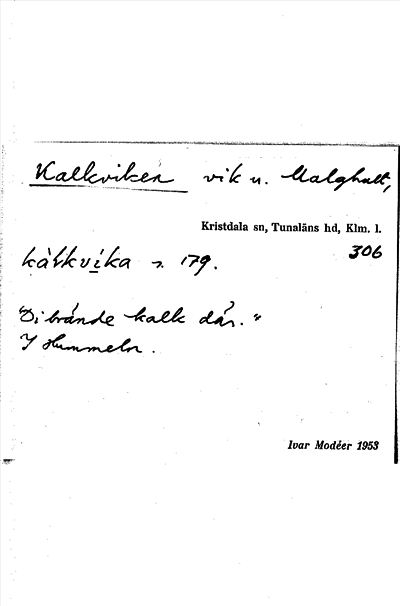 Kalkviken vik u. Malghult,
Kristdala sn, Tunaläns hd, Klm. l.
kàlkvi̲ka 179. 306
"Di brände kalk där."
I Hummeln.
Ivar Modéer 1953